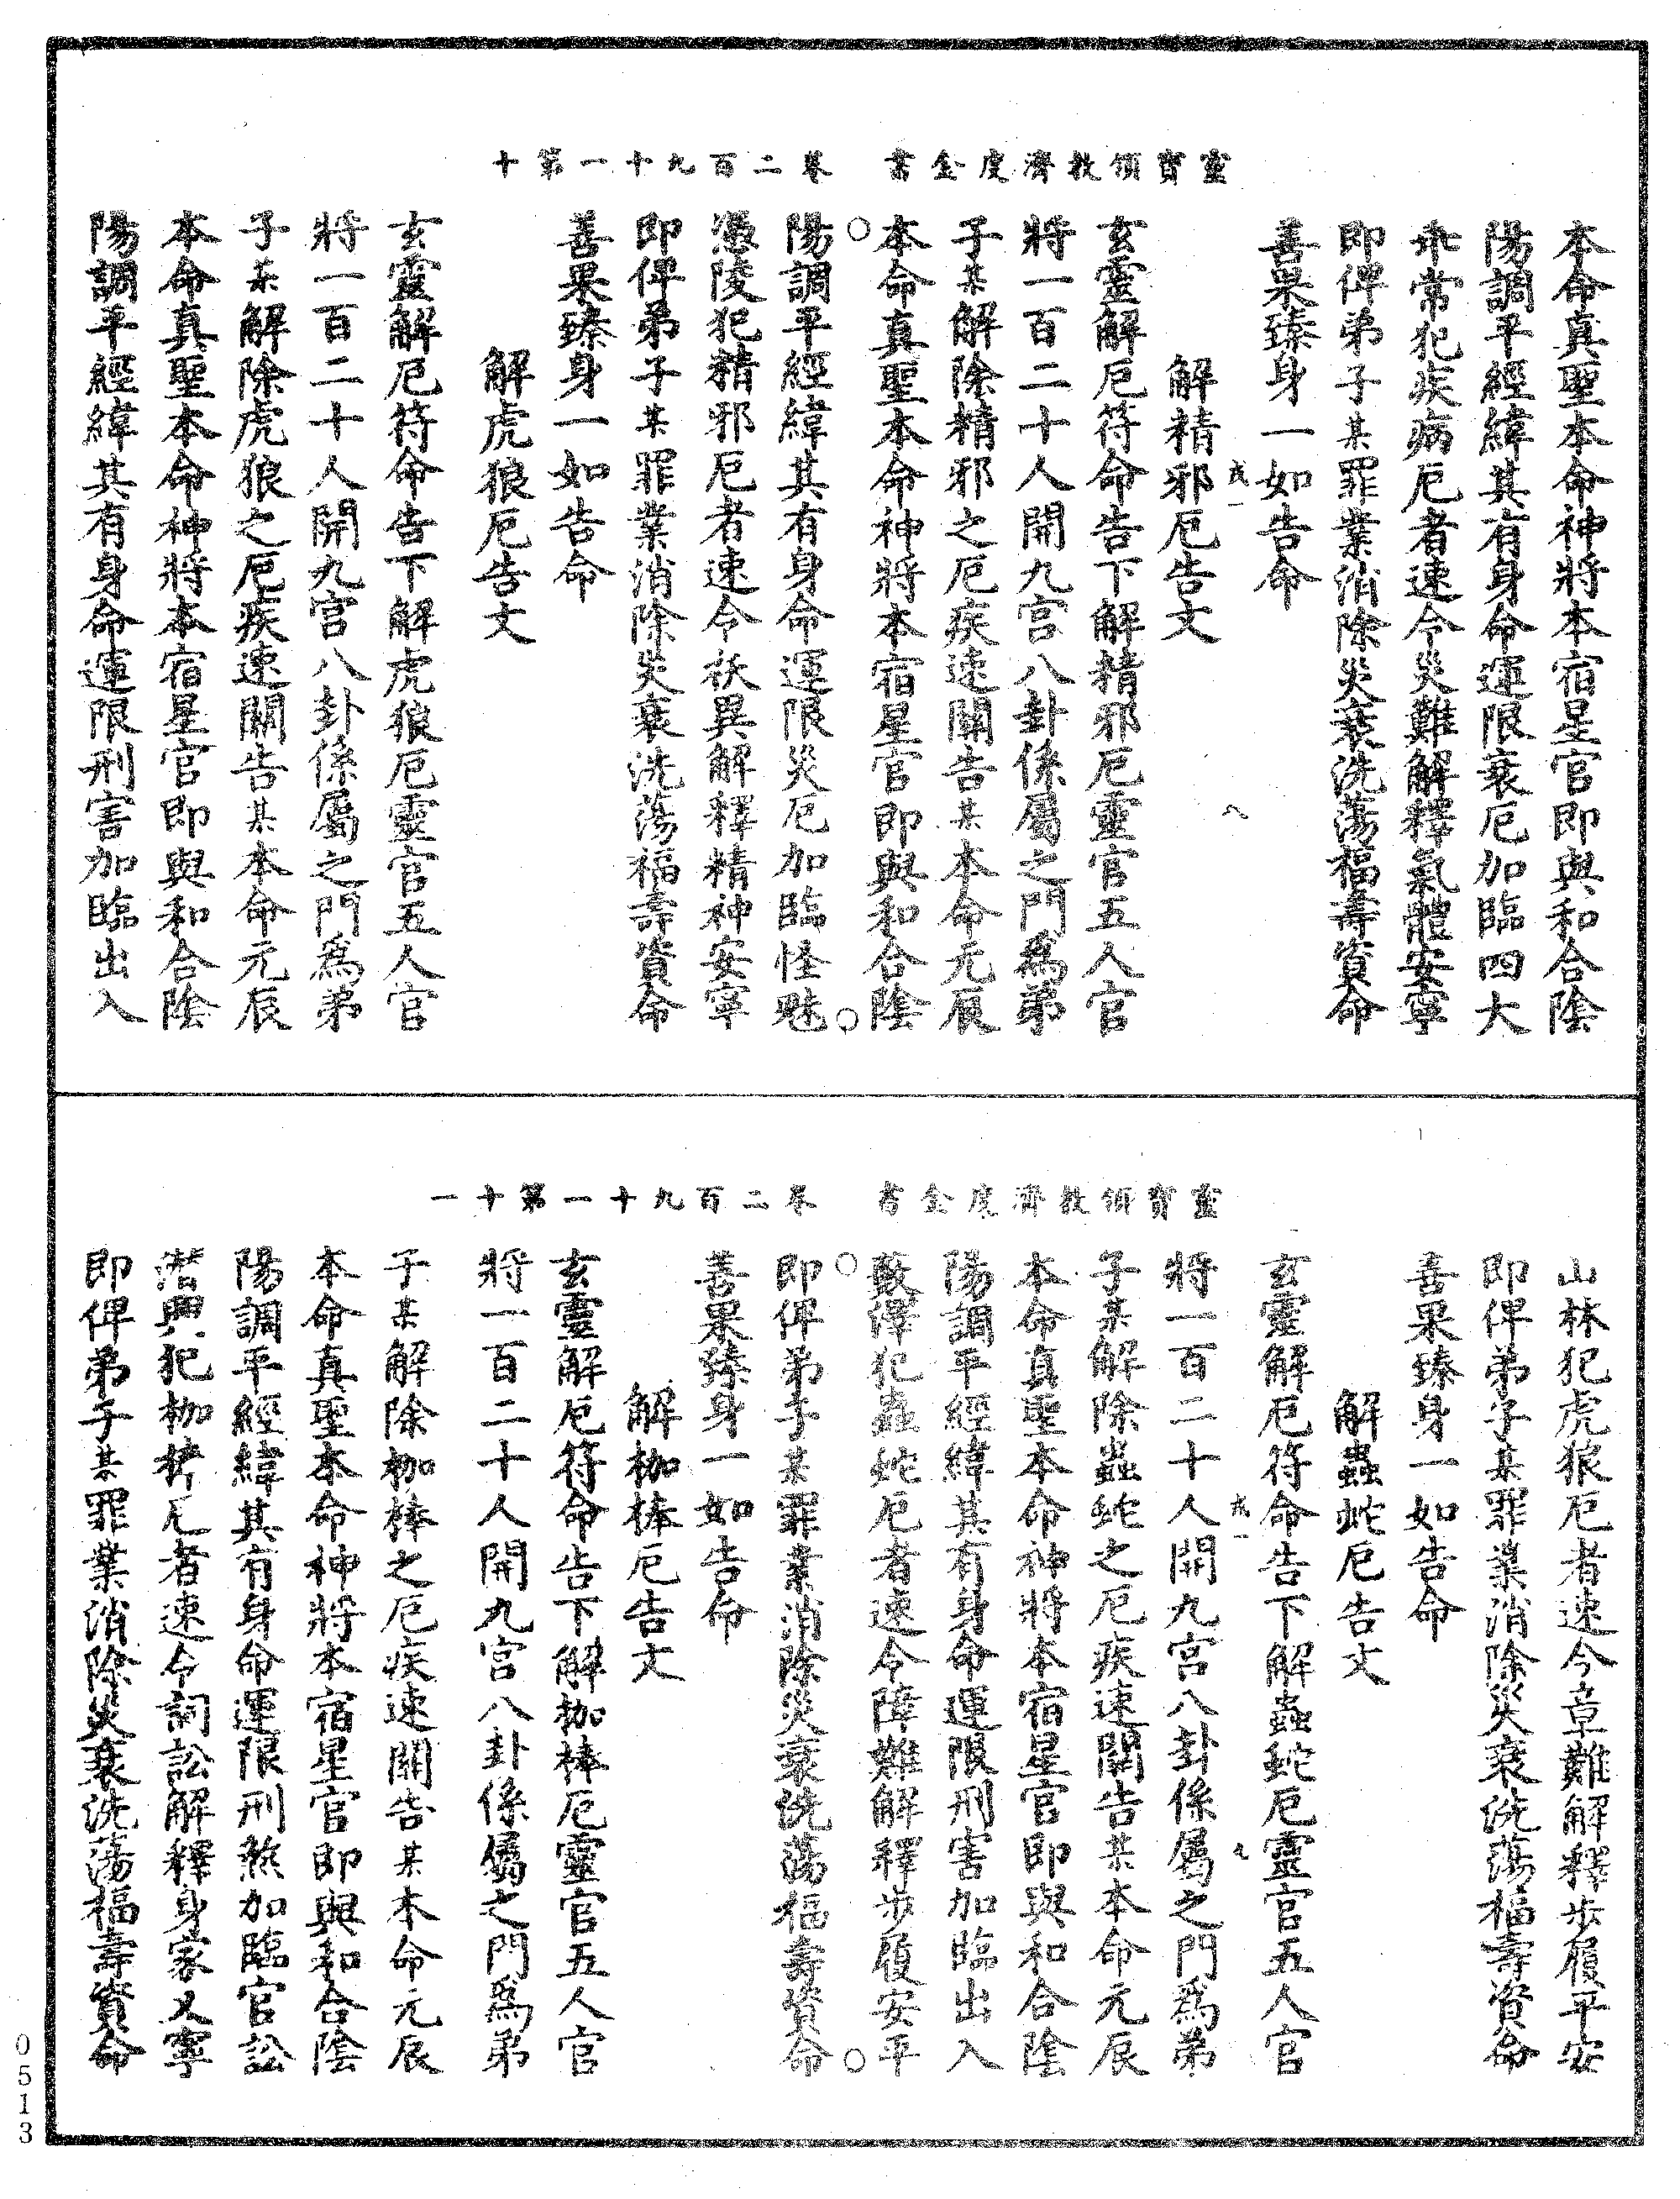 靈寶領教濟度金書　卷二百九十一第十
本命真聖本命神將本宿星官即與和合陰
陽調平經緯其有身命運限衰厄加臨四大
乖常犯疾病厄者速令災難解釋氣體安寧
即俾弟子某罪業消除災衰洗蕩福壽資命
善果臻身一如告命
解精邪厄告文
玄靈解厄符命告下解精邪厄靈官五人官
將一百二十人開九宮八卦係屬之門爲弟
子某解除精邪之厄疾速關告某本命元辰
本命真聖本命神將本宿星官即與和合陰
陽調平經緯其有身命運限災厄加臨怪魅
憑陵犯精邪厄者速令袄異解釋精神安寧
即俾弟子某罪業消除災衰洗蕩福壽資命
善果臻身一如告命
解虎狼厄告文
玄靈解厄符命告下解虎狼厄靈官五人官
將一百二十人開九宮八卦係屬之門爲弟
子某解除虎狼之厄疾速關告某本命元辰
本命真聖本命神將本宿星官即與和合陰
陽調平經緯其有身命運限刑害加臨出入
靈寶領教濟度金書　卷二百九十一第十一
山林犯虎狼厄者速令章難解釋步履平安
即俾弟子某罪業消除災衰洗蕩福壽資命
善果臻身一如告命
解蟲蛇厄告文
玄靈解厄符命告下解蟲蛇厄靈官五人官
將一百二十人開九宮八卦係屬之門爲弟
子某解除蟲蛇之厄疾速關告某本命元辰
本命真聖本命神將本宿星官即與和合陰
陽調平經緯其有身命運限刑害加臨出入
藪澤犯蟲蛇厄者速令障難解釋步履安平
即俾弟子某罪業消除災衰洗蕩福壽資命
善果臻身一如告命
解枷棒厄告文
玄靈解厄符命告下解枷棒厄靈官五人官
將一百二十人開九宮八卦係屬之門爲弟
子某解除枷棒之厄疾速關告某本命元辰
本命真聖本命神將本宿星官即與和合陰
陽調平經緯其有身命運限刑煞加臨官訟
潛興犯枷棒厄者速令詞訟解釋身家乂寧
即俾弟子某罪業消除災衰洗蕩福壽資命
0513